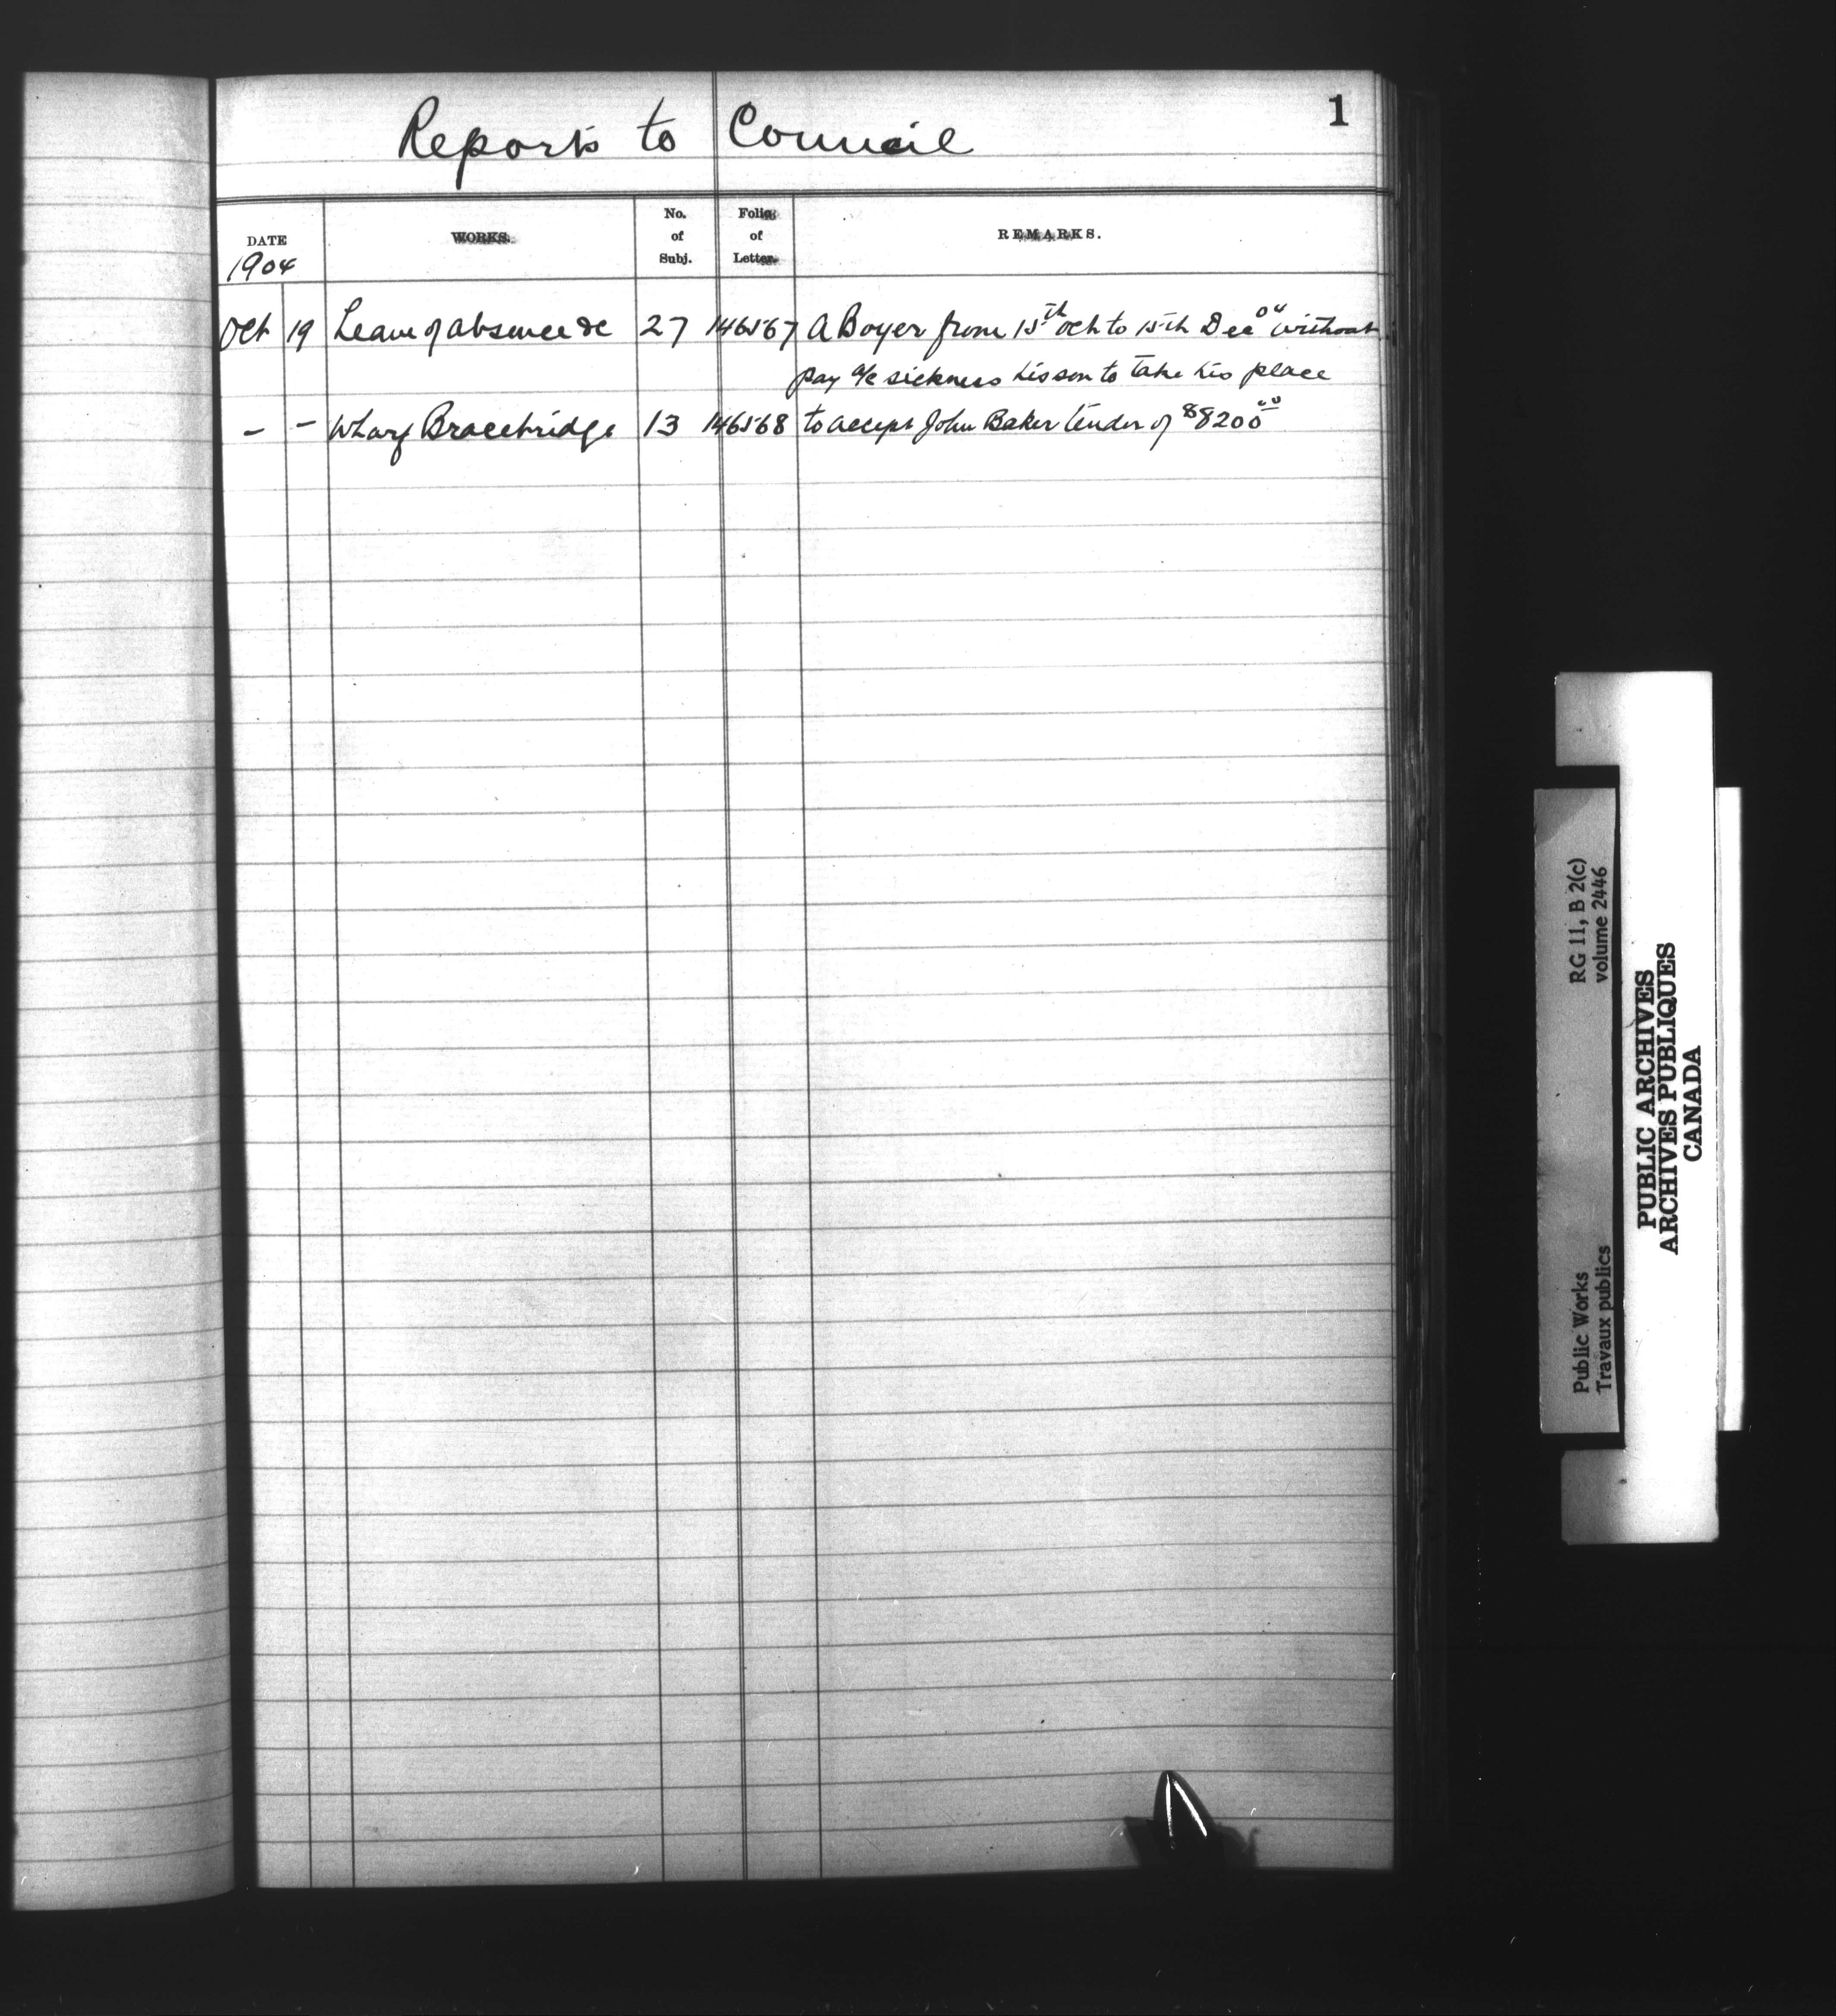 1
Reports to Council
DATE WORKS. No. of Subj. Folio of Letter. REMARKS.
1904
Oct 19 Leave of absence &c 27 146567 A Boyer from 15th Oct to 15th Dec 04 without
pay a/c sickness his son to take his place
– – Wharf Bracebridge 13 146568 to accept John Baker tender of $8200.00
RG 11, B 2(c)
volume 2446
Public Works
Travaux publics
PUBLIC ARCHIVES
ARCHIVES PUBLIQUES
CANADA